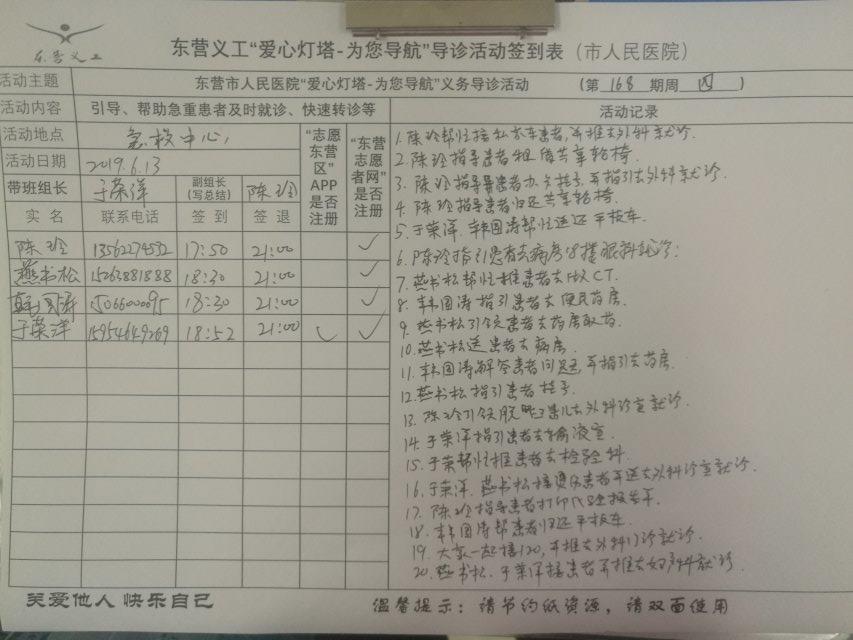 东营义工
东营义工“爱心灯塔-为您导航”导诊活动签到表（市人民医院）
活动主题 东营市人民医院“爱心灯塔-为您导航”义务导诊活动 （第 168 期周 四 ）
活动内容 引导、帮助急重患者及时就诊、快速转诊等 活动记录
活动地点 急救中心
活动日期 2019.6.13
带班组长 于荣洋 副组长（写总结） 陈玲
“志愿东营区”APP是否注册
“东营志愿者网”是否注册
实名 联系电话 签到 签退
陈玲 13562274532 17:50 21:00 ✓
燕书松 15263881888 18:30 21:00 ✓
韩国涛 15066000095 18:30 21:00 ✓
于荣洋 15954649269 18:52 21:00 ✓ ✓
1. 陈玲帮忙接私家车患者，并推去外科就诊.
2. 陈玲指导患者租借共享轮椅.
3. 陈玲指导患者办卡挂号，并指引去外科就诊.
4. 陈玲指导患者归还共享轮椅.
5. 于荣洋、韩国涛帮忙运送平板车.
6. 陈玲指引患者去病房8楼眼科就诊.
7. 燕书松帮忙推患者去做CT.
8. 韩国涛指引患者去便民药房.
9. 燕书松引领患者去药房取药.
10. 燕书松送患者去病房.
11. 韩国涛解答患者问题，并指引去药房.
12. 燕书松指引患者挂号.
13. 陈玲引领脱臼患儿去外科诊室就诊.
14. 于荣洋指引患者去输液室.
15. 于荣帮忙推患者去检验科.
16. 于荣洋、燕书松接烫伤患者并送去外科诊室就诊.
17. 陈玲指导患者打印化验报告单.
18. 韩国涛帮患者归还平板车.
19. 大家一起接120，并推去外科门诊就诊.
20. 燕书松、于荣洋接患者并推去妇产科就诊.
关爱他人 快乐自己 温馨提示：请节约纸资源，请双面使用